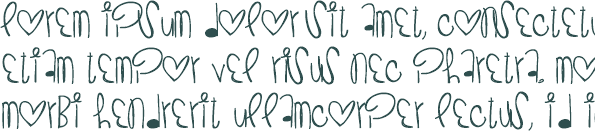 lorem ipsum dolor sit amet, consectetu
etiam tempor vel risus nec pharetra. mo
morbi hendrerit ullamcorper lectus, id i